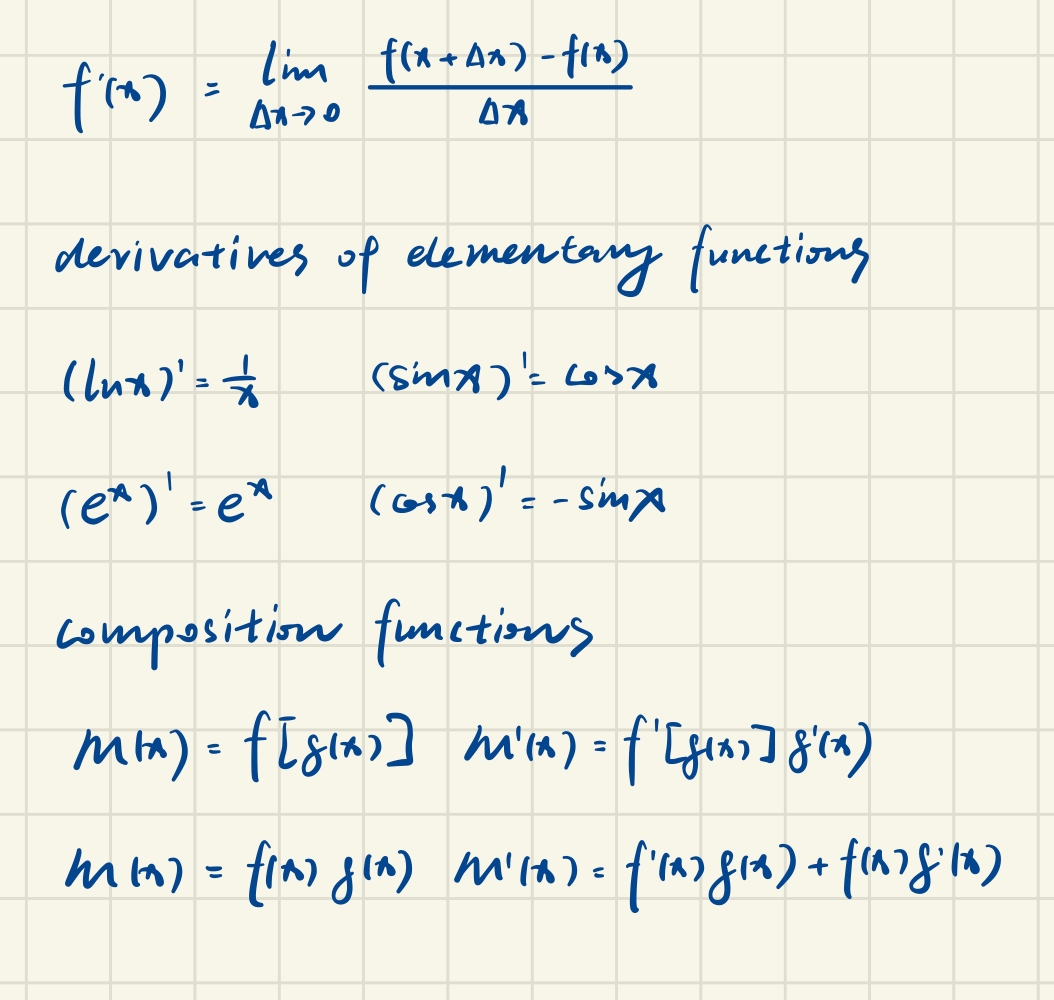 f'(x) = lim Δx→0 f(x+Δx) - f(x) / Δx
derivatives of elementary functions
(lnx)' = 1/x (sinx)' = cosx
(e^x)' = e^x (cosx)' = -sinx
composition functions
m(x) = f[g(x)] m'(x) = f'[g(x)] g'(x)
m(x) = f(x) g(x) m'(x) = f'(x) g(x) + f(x) g'(x)